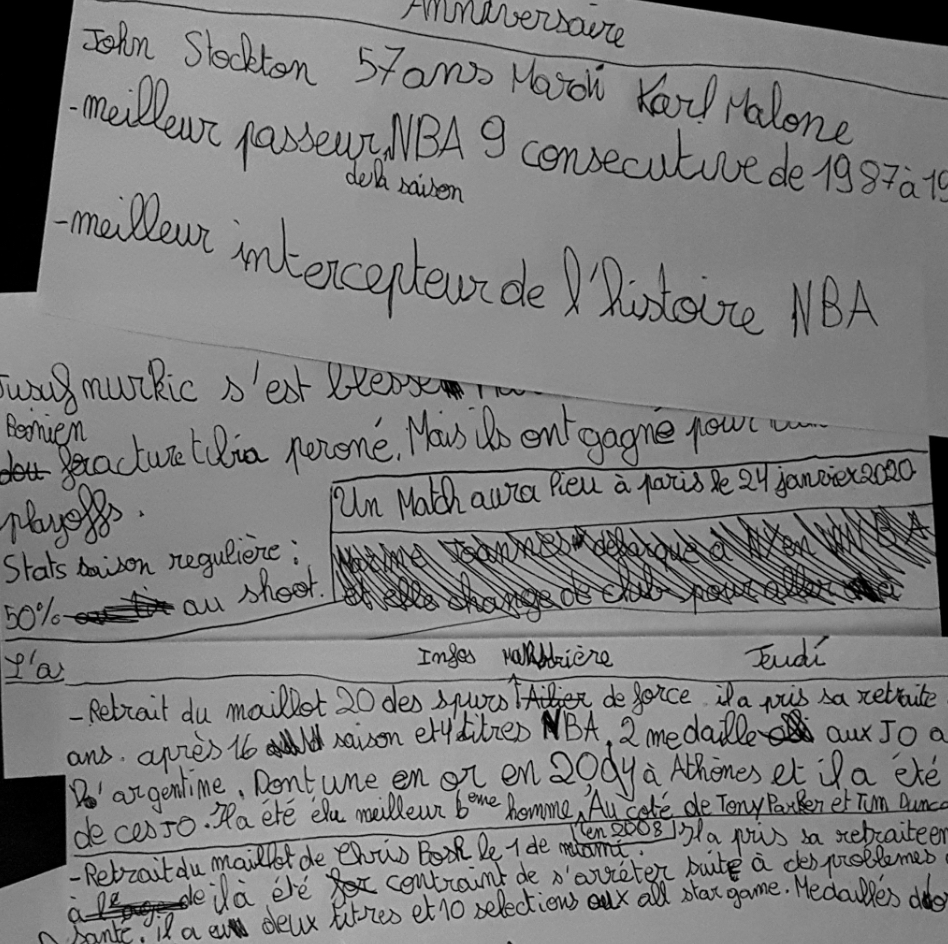 Anniversaire
John Stockton 57 ans Mardi Karl Malone
-meilleur passeur NBA 9 consecutive de 1987 à 19
de la saison
-meilleur intercepteur de l'histoire NBA
Jusuf nurkic s'est blesse
Bosnien
fracture tibia peroné. Mais ils ont gagné pour
playoffs.
Un Match aura lieu à paris le 24 janvier 2020
Stats saison regulière :
Marine Joannes débarque à NY en WNBA
50% au shoot.
et elle change de club pour aller à
L'a Infos Jeudi
- Retrait du maillot 20 des spurs Ailier de force il a pris sa retraite
ans. après 16 saison et 4 titres NBA, 2 medaille aux JO a
D'argentine. Dont une en or en 2004 à Athènes et il a été
de ces JO. Il a été élu meilleur 6eme homme, Au coté de Tony Parker et Tim Dunca
(en 2008)
- Retrait du maillot de Chris Bosh le 1 de miami. Il a pris sa retraite en
à l'age de il à été contraint de s'arrêter suite à des problemes
santé. il a eu deux titres et 10 selections aux all star game. Medaillés d'o